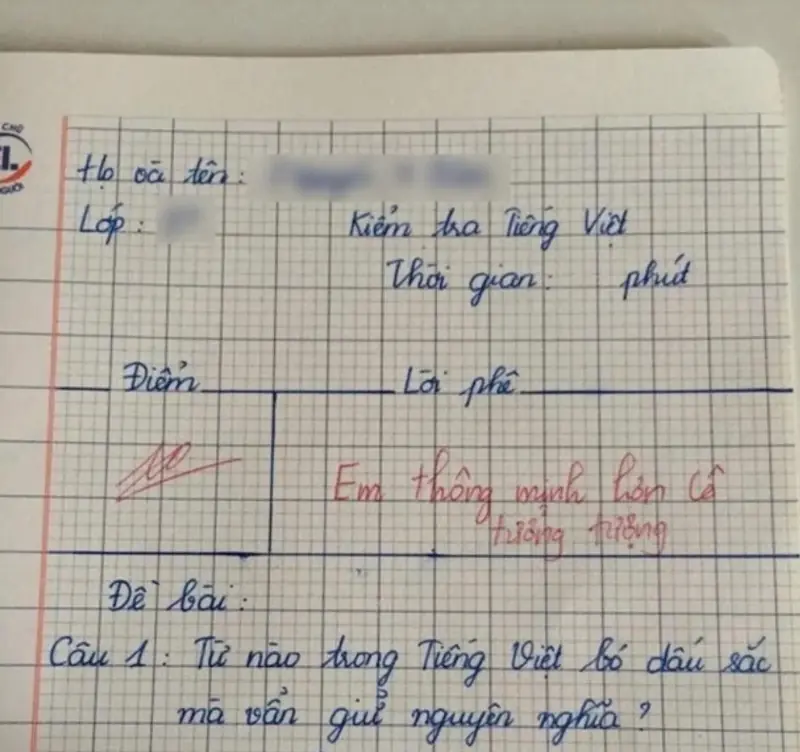 CHỮ
NGƯỜI
Họ và tên:
Lớp:
Kiểm tra Tiếng Việt
Thời gian: phút
Điểm
Lời phê
10
Em thông minh hơn cô
tưởng tượng
Đề bài:
Câu 1: Từ nào trong Tiếng Việt bỏ dấu sắc
mà vẫn giữ nguyên nghĩa?